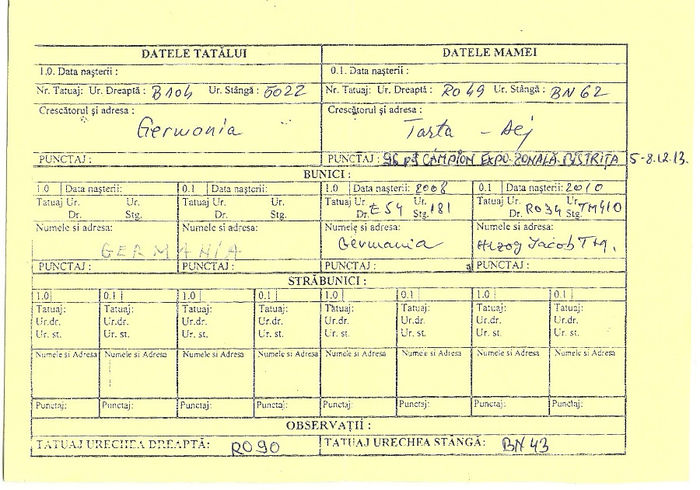 DATELE TATĂLUI DATELE MAMEI
1.0. Data nașterii : 0.1. Data nașterii :
Nr. Tatuaj: Ur. Dreaptă : B104 Ur. Stângă : 5022 Nr. Tatuaj: Ur. Dreaptă : RO49 Ur. Stângă : BN 62
Crescătorul și adresa : Crescătorul și adresa :
Germania Tarta - Dej
PUNCTAJ : PUNCTAJ : 96 p CAMPION EXPO ZONALA BISTRIȚA 5-8.12.13.
BUNICI :
1.0 Data nașterii: 0.1 Data nașterii: 1.0 Data nașterii: 2008 0.1 Data nașterii: 2010
Tatuaj Ur. Ur. Tatuaj Ur. Ur. Tatuaj Ur. Ur. Tatuaj Ur. Ur.
Dr. Stg. Dr. Stg. Dr. E54 Stg. 181 Dr. RO34 Stg. TM410
Numele si adresa: Numele si adresa: Numele si adresa: Numele si adresa:
GERMANIA Germania Herzog Jacob TM.
PUNCTAJ : PUNCTAJ : PUNCTAJ : PUNCTAJ :
STRĂBUNICI :
1.0 0.1 1.0 0.1 1.0 0.1 1.0 0.1
Tatuaj: Tatuaj: Tatuaj: Tatuaj: Tatuaj: Tatuaj: Tatuaj: Tatuaj:
Ur.dr. Ur.dr. Ur.dr. Ur.dr. Ur.dr. Ur.dr. Ur.dr. Ur.dr.
Ur. st. Ur. st. Ur. st. Ur. st. Ur. st. Ur. st. Ur. st. Ur. st.
Numele si Adresa Numele si Adresa Numele si Adresa Numele si Adresa Numele si Adresa Numele si Adresa Numele si Adresa Numele si Adresa
Punctaj: Punctaj: Punctaj: Punctaj: Punctaj: Punctaj: Punctaj: Punctaj:
OBSERVAȚII :
TATUAJ URECHEA DREAPTĂ: RO90 TATUAJ URECHEA STÂNGĂ: BN 43